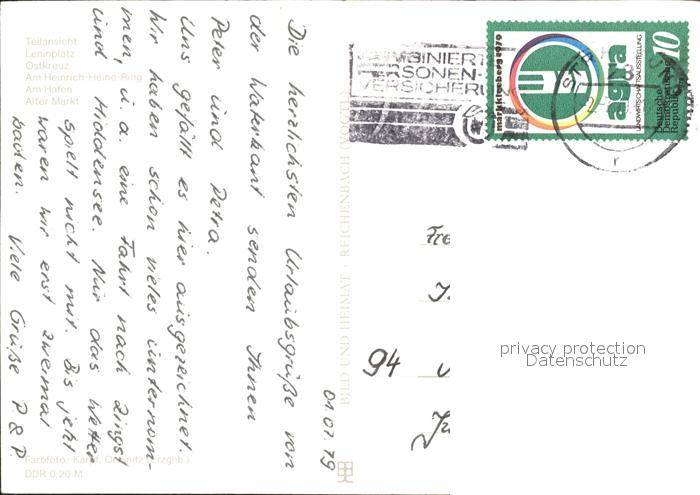 Teilansicht
Leninplatz
Ostkreuz
Am Heinrich-Heine-Ring
Am Hafen
Alter Markt
Die herzlichsten Urlaubsgrüße von
der Waterkant senden Ihnen
Peter und Petra.
Uns gefällt es hier ausgezeichnet.
Wir haben schon vieles unternom-
men, u. a. eine Fahrt nach Zingst
und Hiddensee. Nur das Wetter
spielt nicht mit. Bis jetzt
waren wir erst zweimal
baden. Viele Grüße P. & P.
01.07.79
Farbfoto:
DDR 0,20 M
BILD UND HEIMAT · REICHENBACH (VOGTL
BINIERT
ERSONEN-
VERSICHERU
markkleeberg 1979
agra
LANDWIRTSCHAFTSAUSSTELLUNG
10
Deutsche
Demokratische
Republik
r
94
privacy protection
Datenschutz